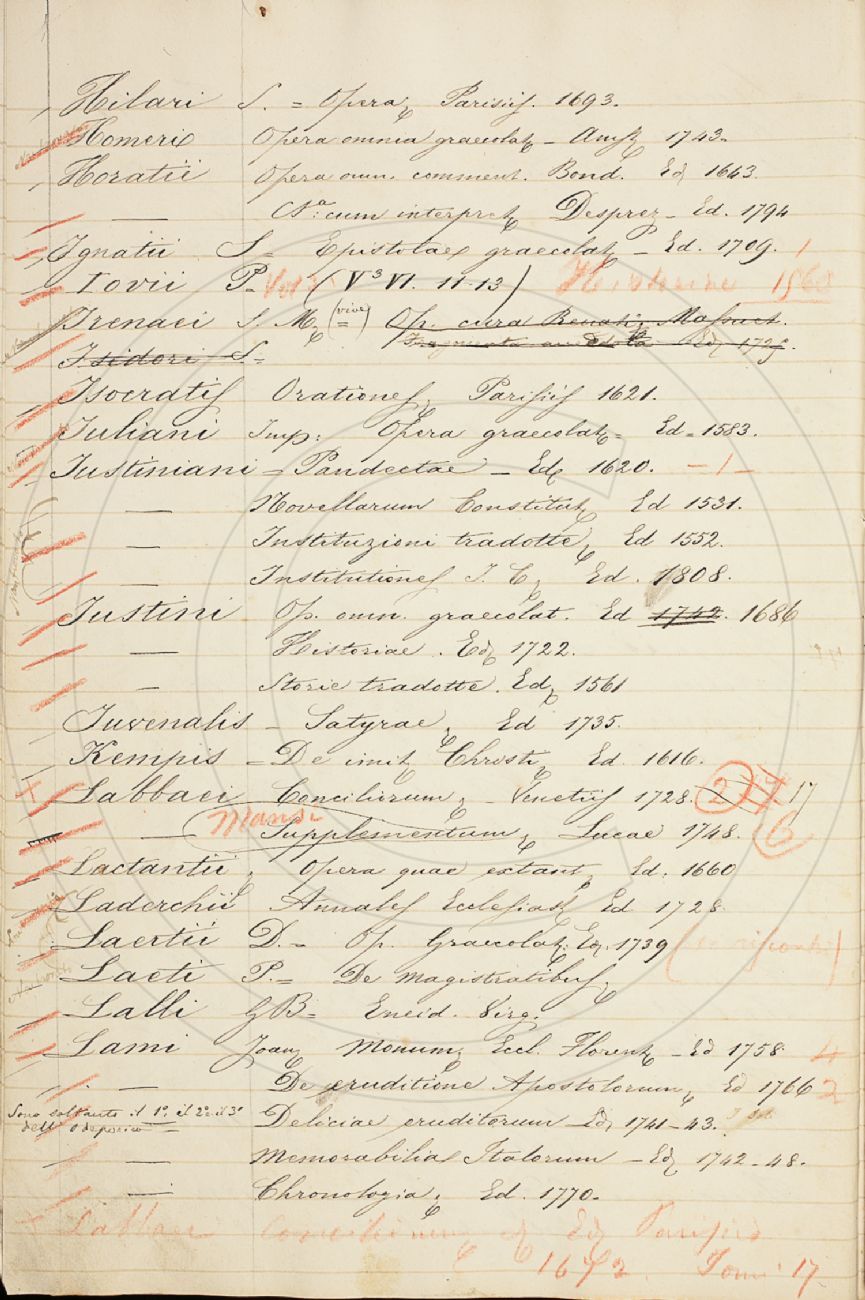 Hilari S. = Opera, Parisiis. 1693.
Homeri Opera omnia graecolat, - Amst, 1743.
Horatii Opera omn. comment. Bond. Ed, 1643.
— cum interpret, Desprez - Ed. 1794
Ignatii S = Epistolae graecolat, - Ed. 1709. 1
Iovii P = (V 3 VI. 11-13) 1560
Irenaei S. M, (vive) = Op. cura Renati, Massuet.
Ed, 1725.
Isidori S =
Isocratis Orationes, Parisiis 1621.
Iuliani Imp: Opera graecolat, = Ed = 1583.
Iustiniani = Pandectae - Ed, 1620. - 1 -
— Novellarum Constitut, Ed 1531.
— Instituzioni tradotte, Ed 1552.
— Institutiones I. C, Ed. 1808.
Justini Op. omn. graecolat. Ed 1742. 1686
— Historiae. Ed, 1722.
— Storie tradotte. Ed, 1561
Juvenalis - Satyrae, Ed 1735.
Kempis = De imit, Christi, Ed. 1616.
+ Labbaei Conciliorum, - Venetiis 1728. 2 17
Mansi
— Supplementum, Lucae 1748. 6
Lactantii, Opera quae extant, Ed. 1660
Laderchii Annales Ecclesiast, Ed 1728
Laertii D. = Op. Graecolat, Ed, 1739
Laeti P. = De magistratibus,
Lalli G B = Eneid. Virg.
Lami Joan, Monum, Eccl. Florent, - Ed 1758. 4
— De eruditione Apostolorum, Ed 1766 2
Sono soltanto il 1º, il 2º il 3º Deliciae eruditorum - Ed, 1741-43.
dell' Odeporico —
— Memorabilia Italorum - Ed, 1742-48.
— Chronologia, Ed. 1770.
+ Labbaei Ed, Parisiis
1672. Tomi 17.